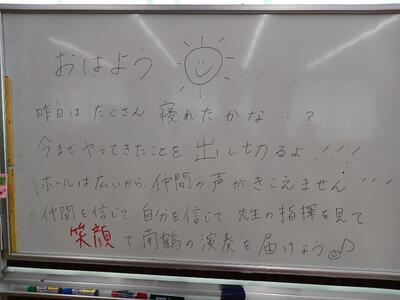 おはよう
昨日は たくさん 寝れたかな…?
今までやってきたことを 出し切るよ!!!
ホールは広いから、仲間の声がきこえません!!!
仲間を信じて、自分を信じて、先生の指揮を見て
笑顔で南鶴の演奏を届けよう♪